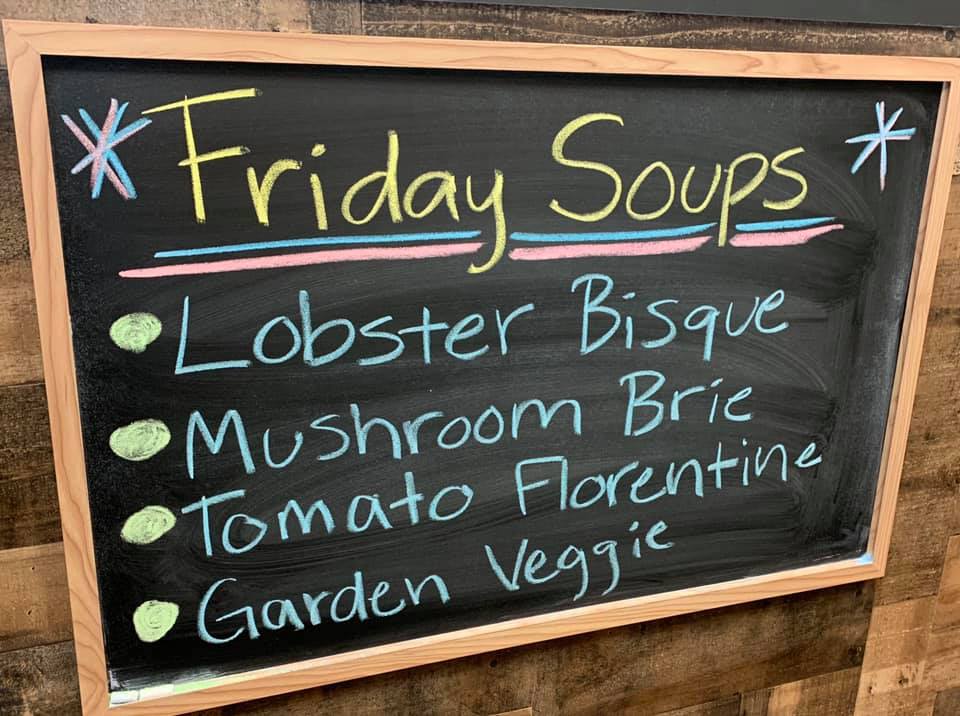 Friday Soups
Lobster Bisque
Mushroom Brie
Tomato Florentine
Garden Veggie